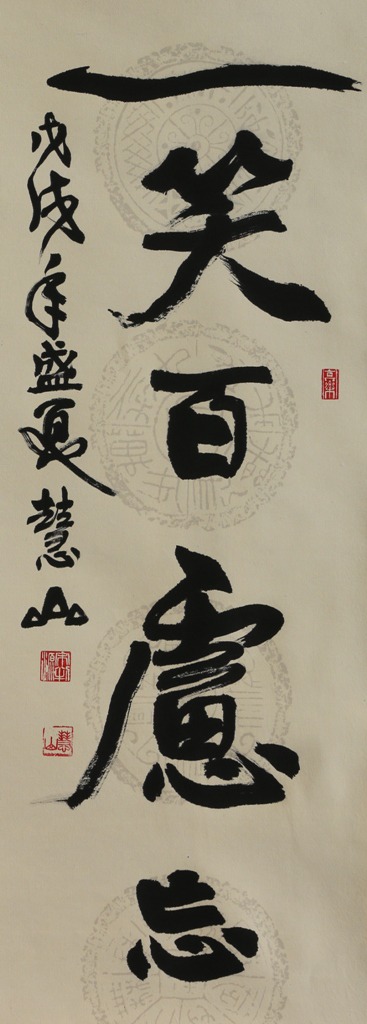 一笑百慮忘
戊戌年盛夏慧山
慧山